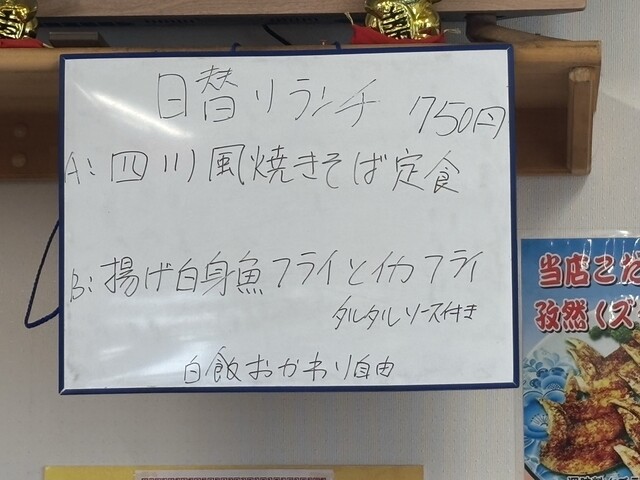 日替りランチ 750円
A: 四川風焼きそば定食
B: 揚げ白身魚フライとイカフライ
タルタルソース付き
白飯おかわり自由
当店こだ
孜然(ズ